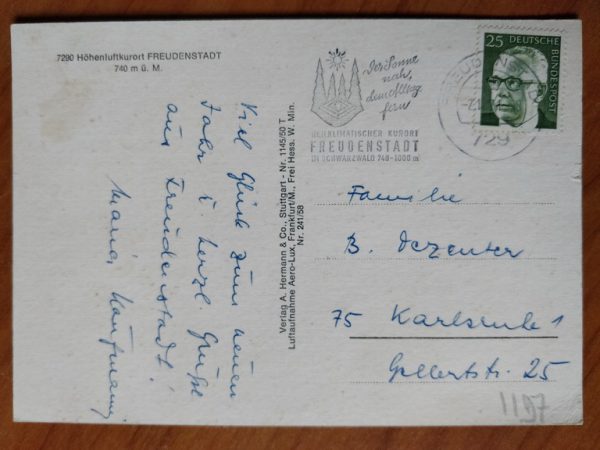 7290 Höhenluftkurort FREUDENSTADT
740 m ü. M.
Viel Glück zum neuen
Jahr u. herzl. Grüße
aus Freudenstadt!
Maria Kaufmann
Verlag A. Hermann & Co., Stuttgart - Nr. 1145/50 T
Luftaufnahme Aero-Lux, Frankfurt/M., Frei Hess. W. Min.
Nr. 241/58
der Sonne
nah,
dem Alltag
fern
HEILKLIMATISCHER KURORT
FREUDENSTADT
IM SCHWARZWALD 740-1000 m
25 DEUTSCHE BUNDESPOST
729
Familie
B. Dezenter
75 Karlsruhe 1
Gellertstr. 25
1197